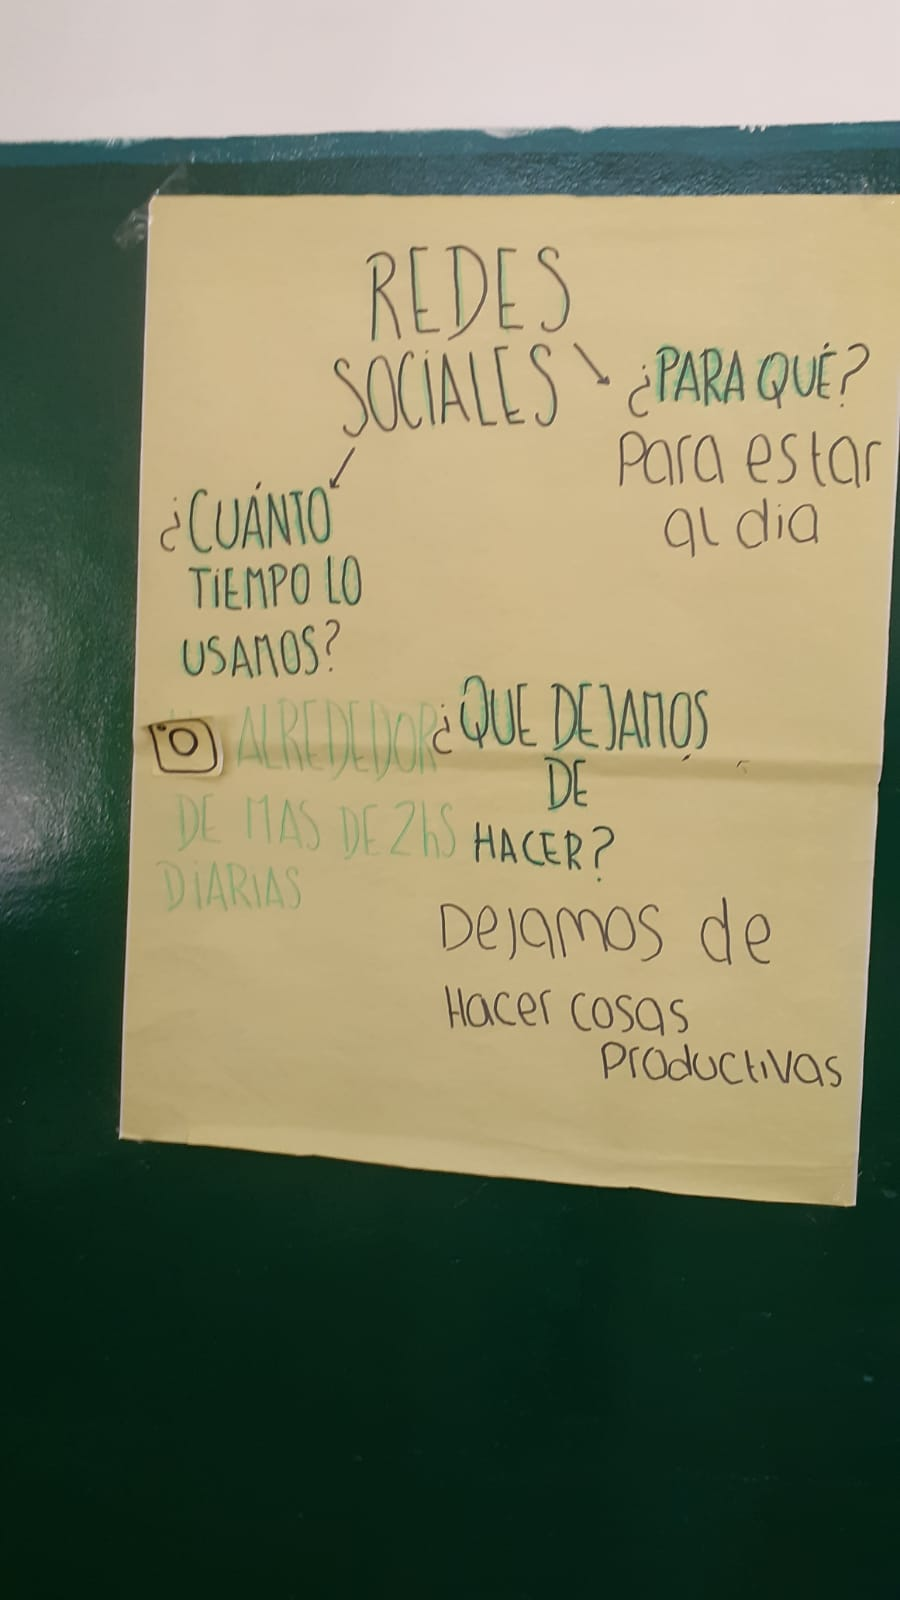 REDES
SOCIALES
¿PARA QUÉ?
Para estar
al dia
¿CUÁNTO
TIEMPO LO
USAMOS?
ALREDEDOR
DE MAS DE 2hS
DIARIAS
¿QUE DEJAMOS
DE
HACER?
Dejamos de
Hacer cosas
Productivas